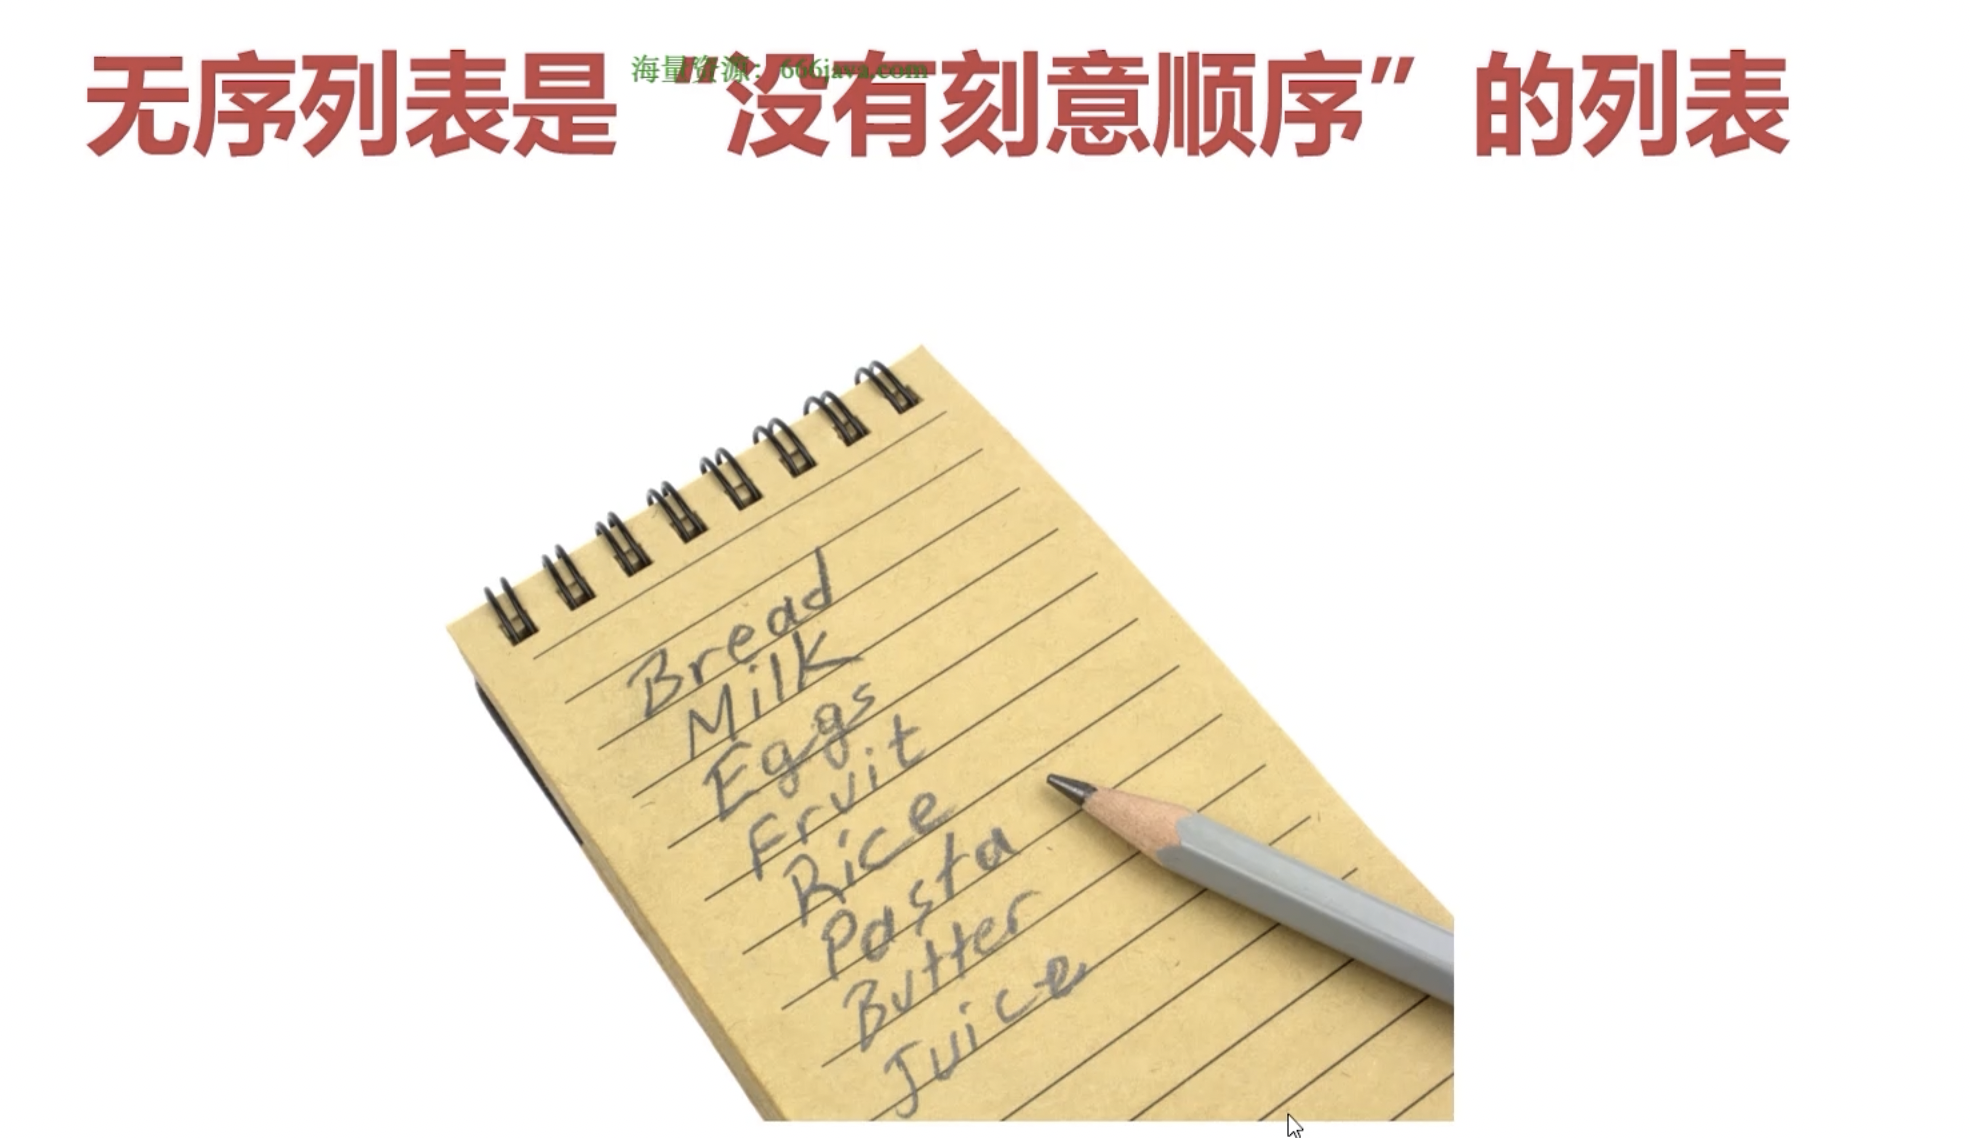 无序列表是“没有刻意顺序”的列表
海量资源：666java.com
Bread
Milk
Eggs
Fruit
Rice
Pasta
Butter
Juice